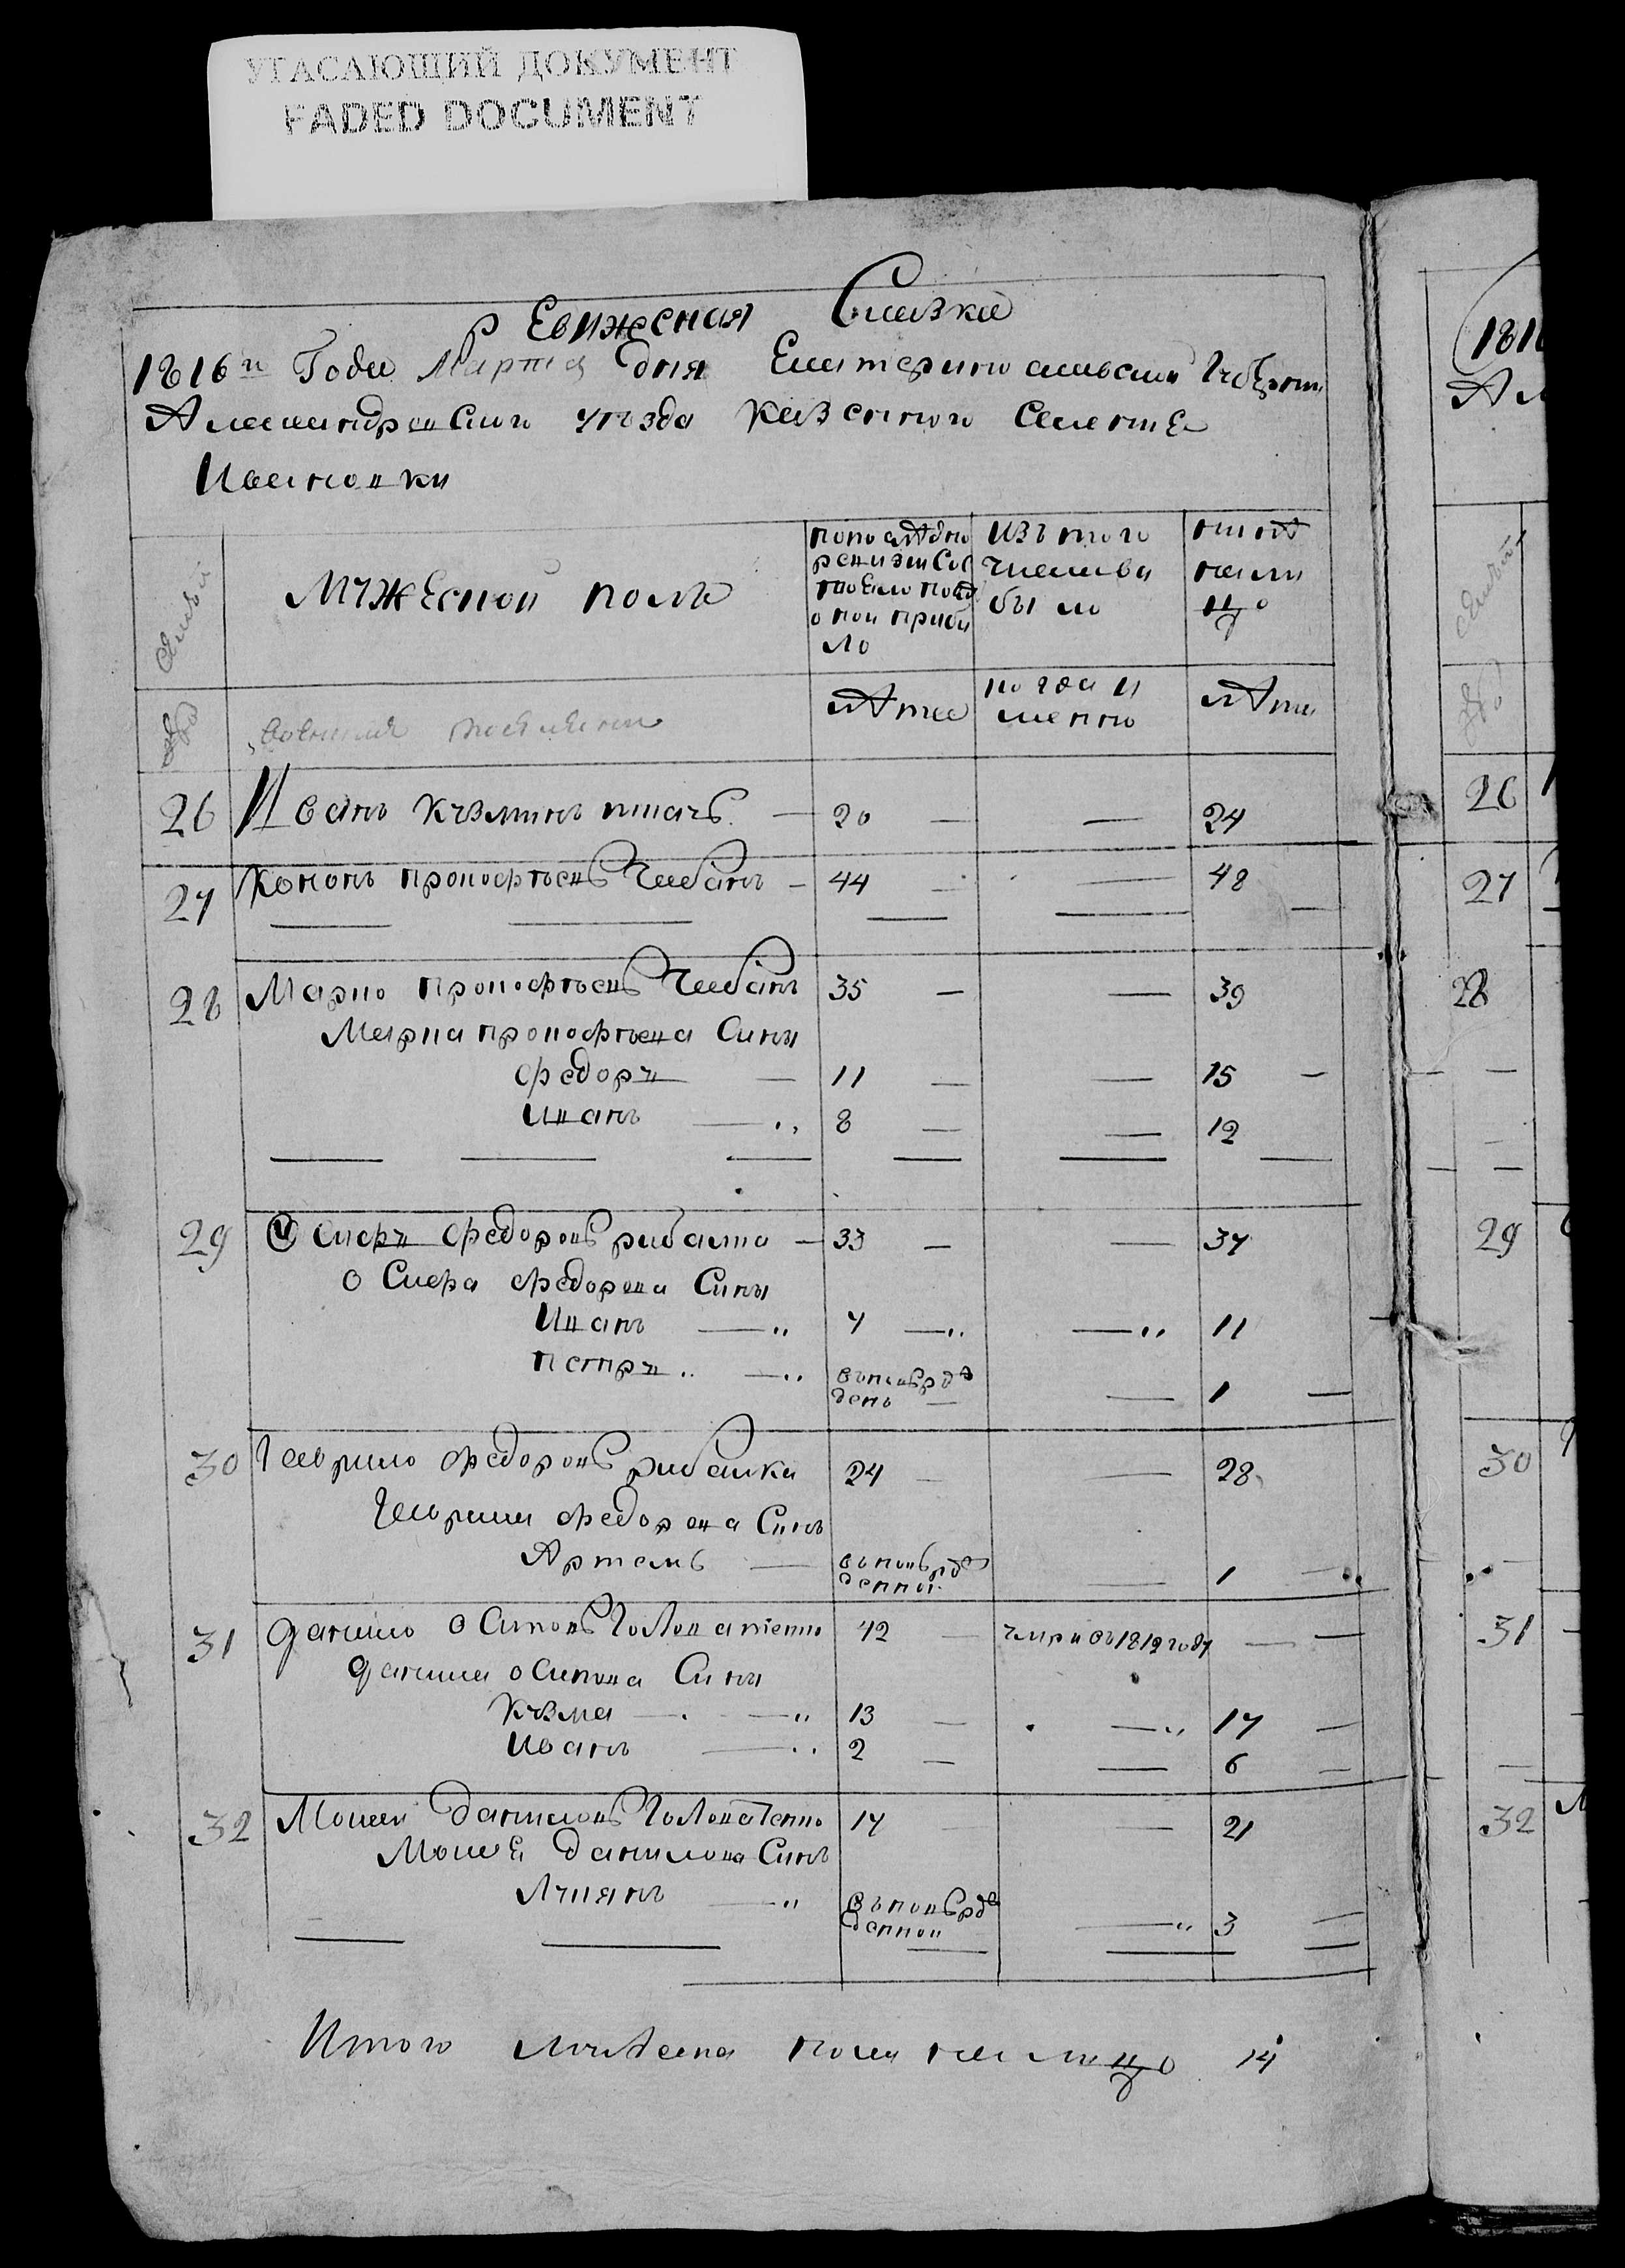 УГАСАЮЩИЙ ДОКУМЕНТ
FADED DOCUMENT
Ревижская Сказка
1816го Года Марта дня Екатеринославской Губернии
Александрийского уезда казенного Селения
Ивановки
Семьи
Мужеской полъ
по последней ревизии состояло и после оной прибыло
Изъ того числа выбыло
ныне на лицо
Лета
когда именно
Лета
26 Иванъ Кузминъ ткачь — 20 — — 24
27 Кононъ Прокофьевъ Чебанъ — 44 — — 48
28 Марко Прокофьевъ Чебанъ 35 — — 39
Марка Прокофьева Сыны
Федоръ — 11 — — 15 —
Иванъ — 8 — — 12
29 Осифъ Федоровъ рибалка — 33 — — 37
Осифа Федорова Сыны
Иванъ — 7 — — 11
Петръ — въ новь рожденъ — — 1 —
30 Гаврило Федоровъ рибалка 24 — — 28
Гаврила Федорова Синъ
Артемъ — въ новь рожденной — 1 —
31 Данило Осиповъ Головатенко 42 — умре въ 1812 году — —
Данила Осипова Сины
Кузма — 13 — — 17 —
Иванъ — 2 — — 6 —
32 Мосей Даниловъ Головатенко 17 — — 21
Мосея Данилова Синъ
Лукянъ — въ новь рожденной — 3 —
Итого мужеска пола на лицо 14
1816
26
27
28
29
30
31
32